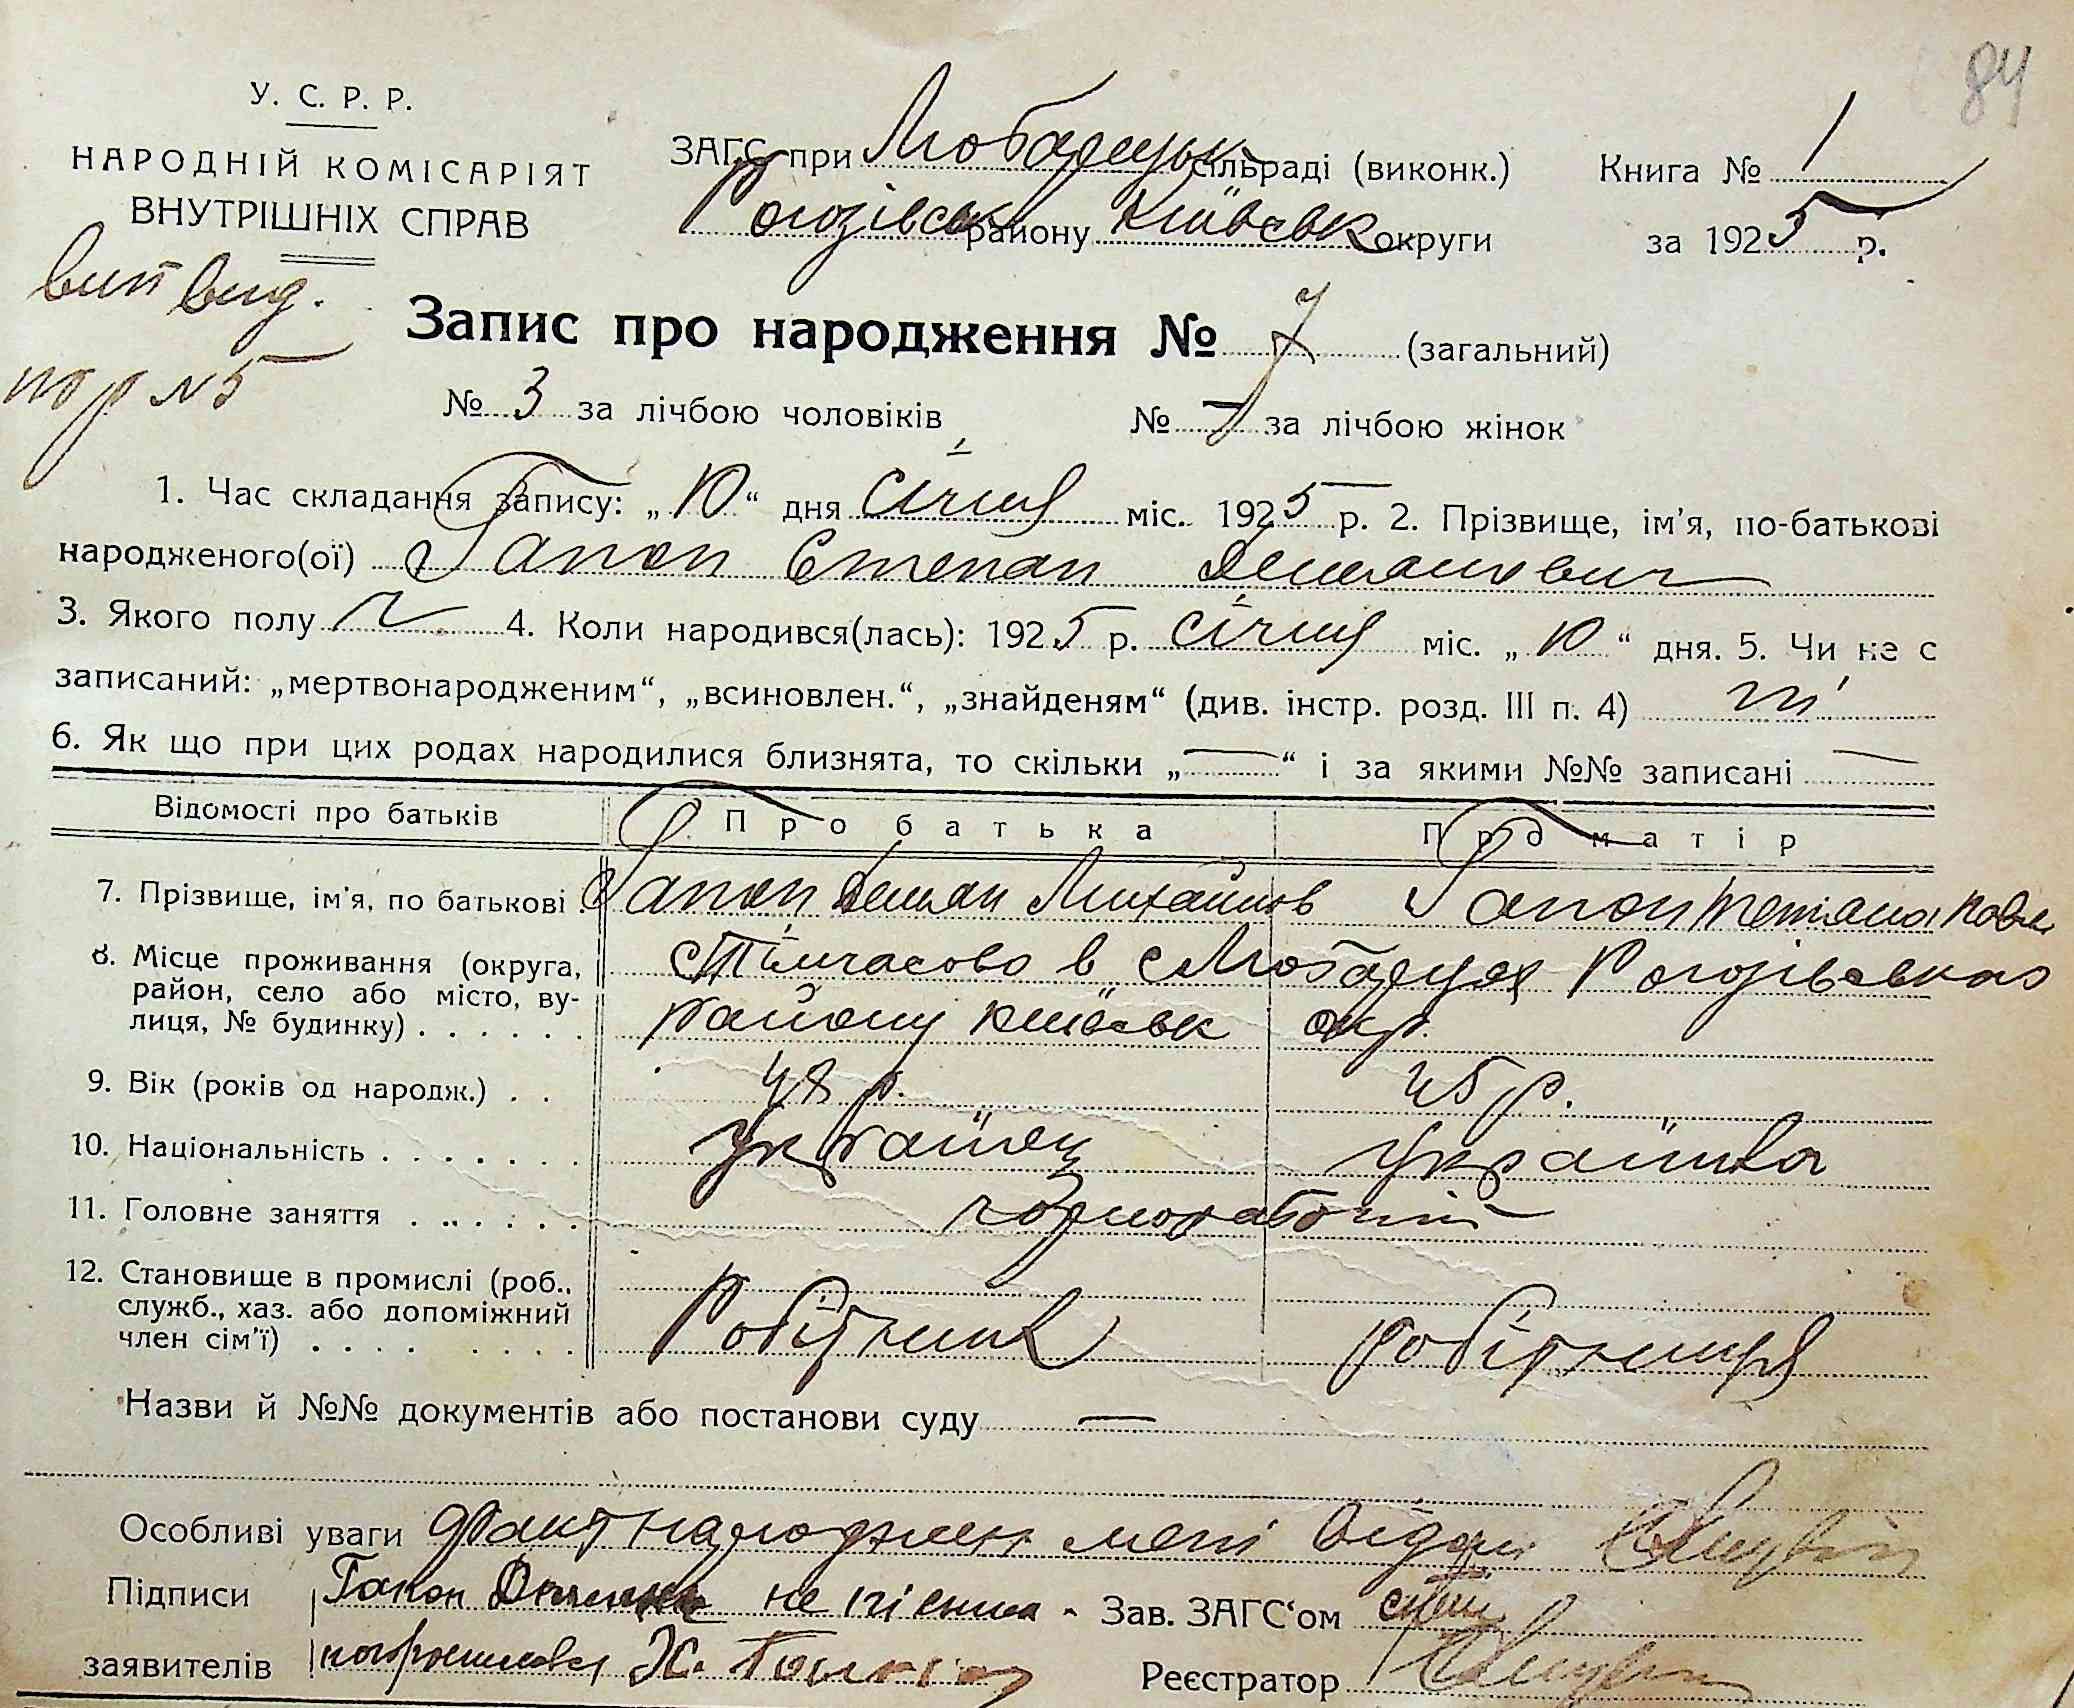 84
У. С. Р. Р.
НАРОДНІЙ КОМІСАРІЯТ
ВНУТРІШНІХ СПРАВ
ЗАГС при Любарецьк сільраді (виконк.)
Рогозівськ району Київськ округи
Книга № 1
за 1925 р.
вип вид.
пор №5
Запис про народження № 7 (загальний)
№ 3 за лічбою чоловіків № — за лічбою жінок
1. Час складання запису: „10“ дня Січня міс. 1925 р. 2. Прізвище, ім'я, по-батькові
народженого(ої) Гапон Степан Демянович
3. Якого полу ч 4. Коли народився(лась): 1925 р. Січня міс. „10“ дня. 5. Чи не є
записаний: „мертвонародженим“, „всиновлен.“, „знайденям“ (див. інстр. розд. III п. 4) ні
6. Як що при цих родах народилися близнята, то скільки „—“ і за якими №№ записані —
Відомості про батьків Про батька Про матір
7. Прізвище, ім'я, по батькові Гапон Демян Михайлов Гапон Тетяна Павл
8. Місце проживання (округа, район, село або місто, вулиця, № будинку) Тимчасово в с Любарцях Рогозівсько
району Київськ окр.
9. Вік (років од народж.) 48 р. 45 р.
10. Національність Українец Українка
11. Головне заняття чорнорабочий
12. Становище в промислі (роб., служб., хаз. або допоміжний член сім'ї) Робітник робітниця
Назви й №№ документів або постанови суду —
Особливі уваги Факт народжен мені відом
Підписи Гапон Демян не Зав. ЗАГС'ом
заявителів Реєстратор